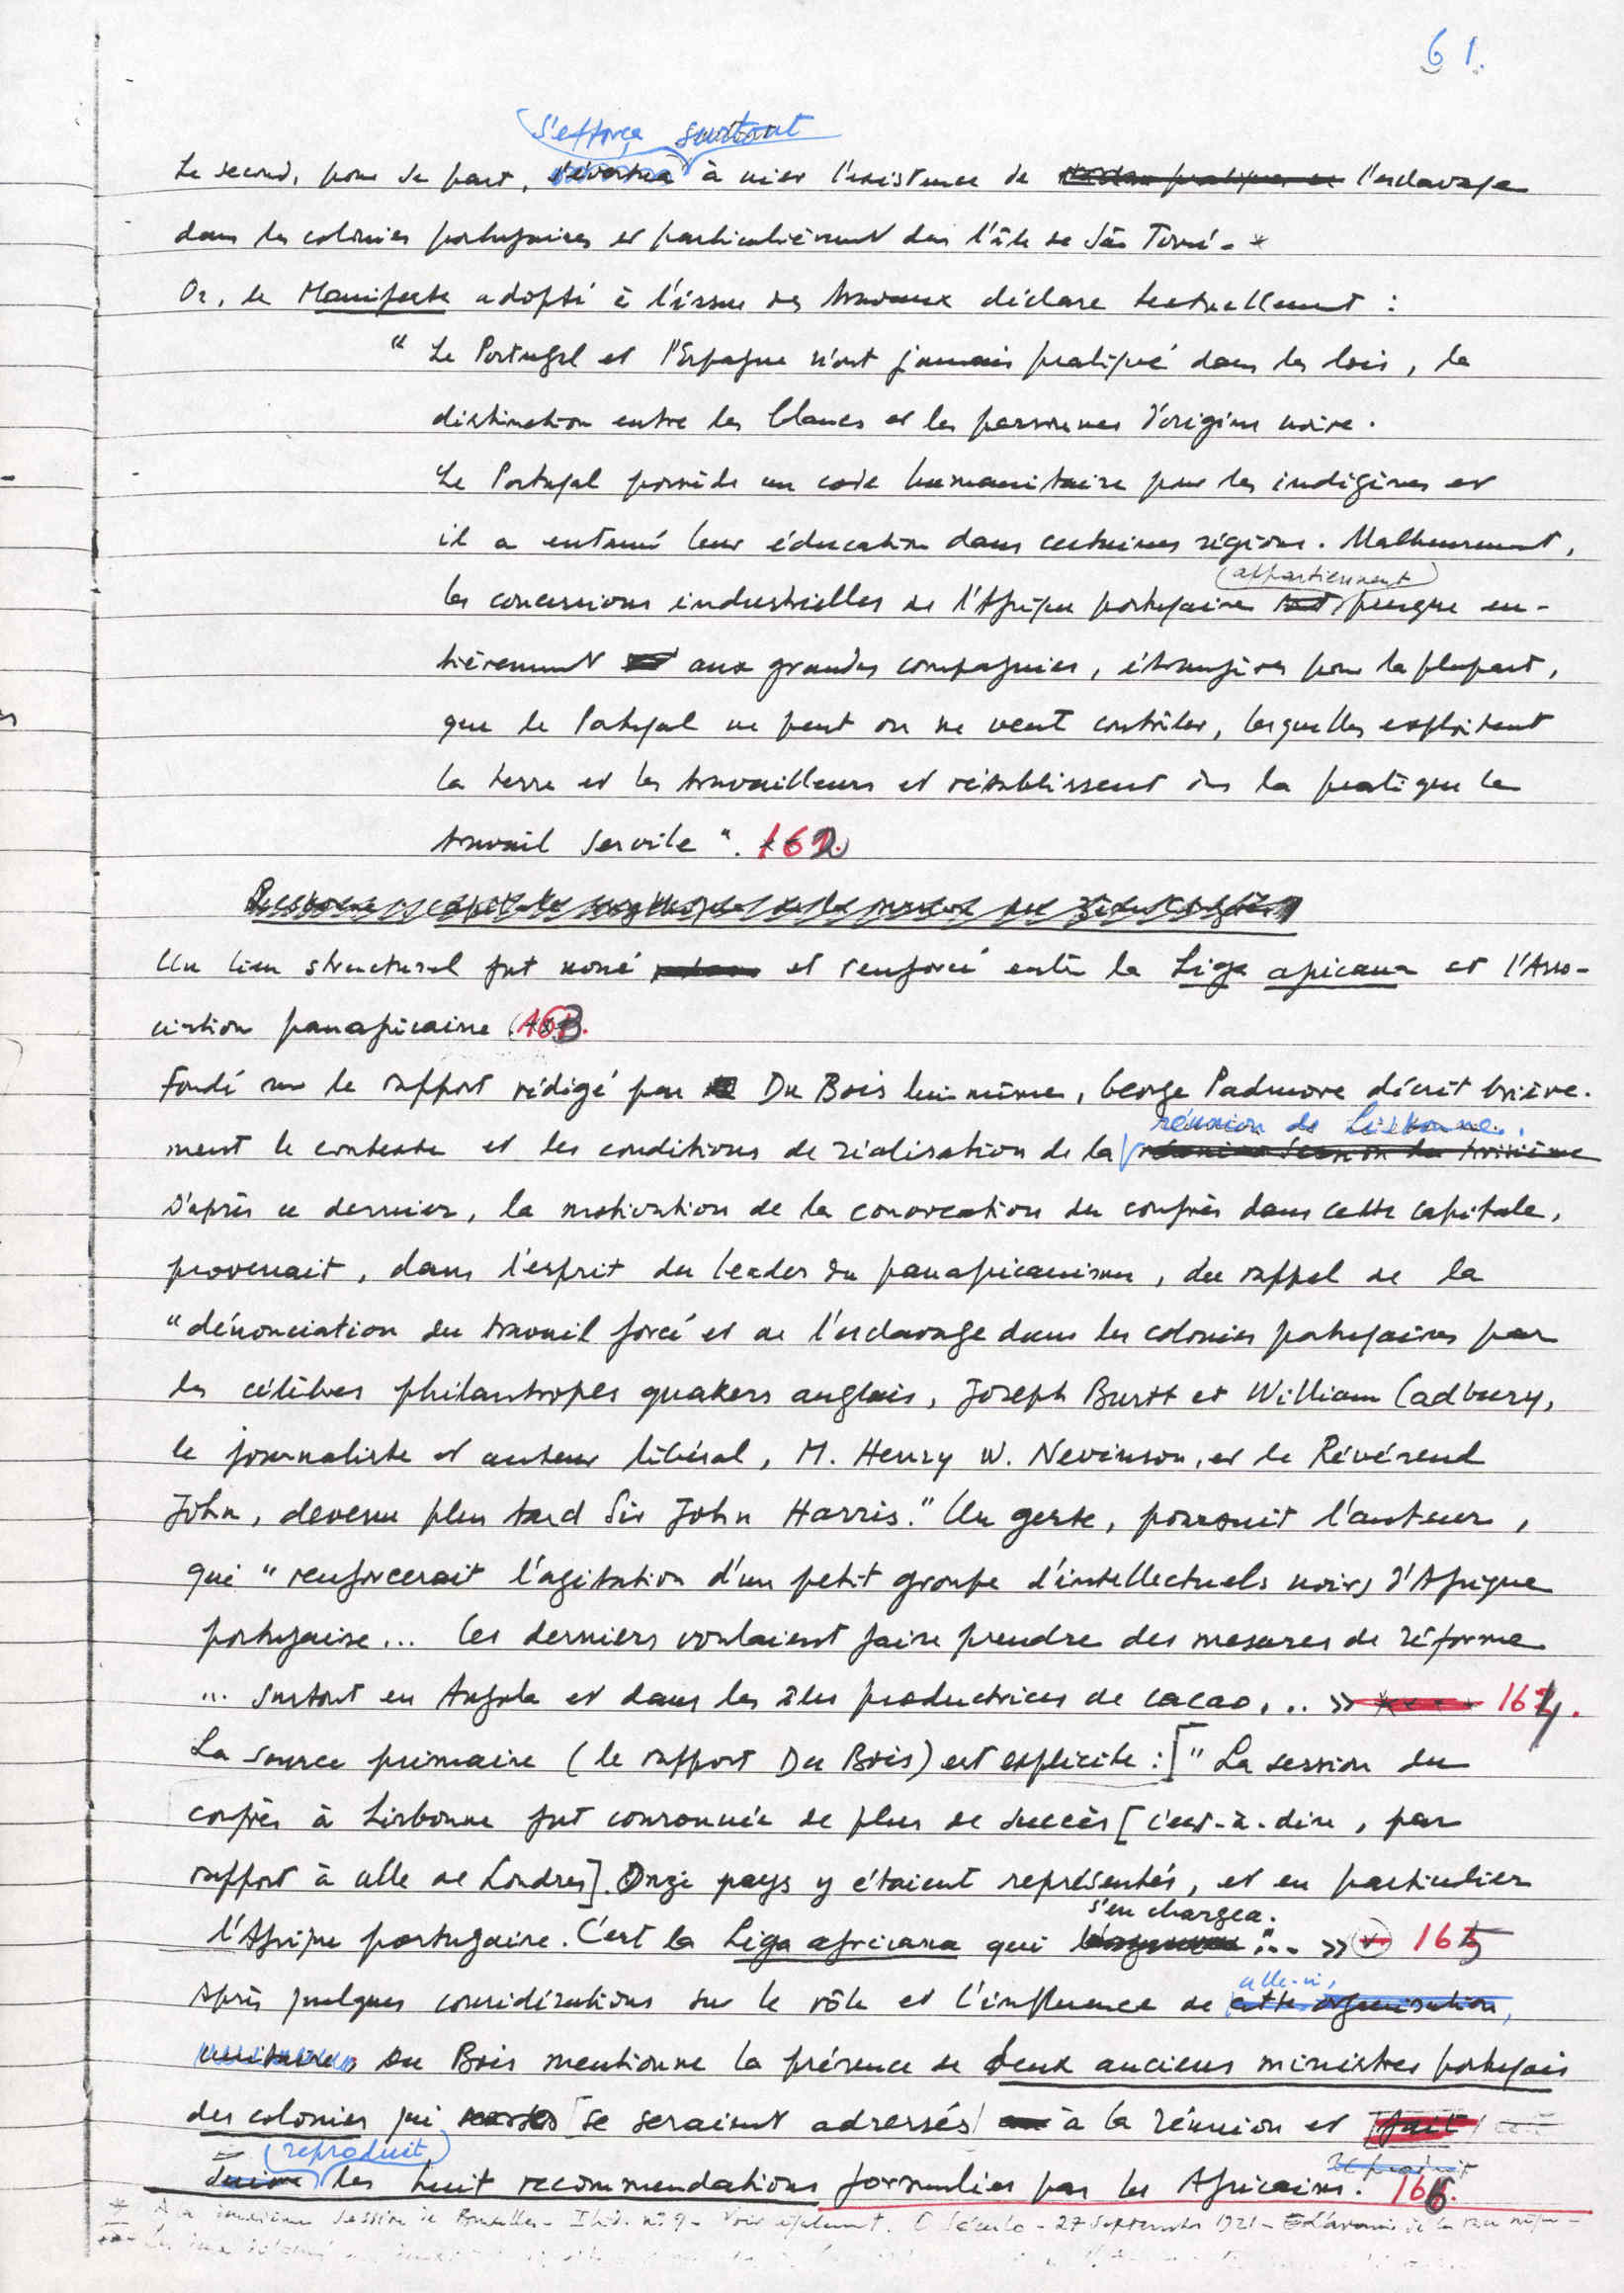 61.
s'efforça surtout
Le second, pour sa part, s'évertua à nier l'existence de l'esclavage
dans les colonies portugaises et particulièrement dans l'île de São Tomé. *
Or, le Manifeste adopté à l'issue des travaux déclare textuellement :
" Le Portugal et l'Espagne n'ont jamais pratiqué dans les lois, la
distinction entre les blancs et les personnes d'origine noire.
Le Portugal possède un code humanitaire pour les indigènes et
il a entamé leur éducation dans certaines régions. Malheureusement,
(appartiennent)
les concessions industrielles de l'Afrique portugaise sont presque en-
tièrement aux grandes compagnies, étrangères pour la plupart,
que le Portugal ne peut ou ne veut contrôler, lesquelles exploitent
la terre et les travailleurs et rétablissent dans la pratique le
travail servile ". 162
Un lien structurel fut noué et renforcé entre la Liga africana et l'Asso-
ciation panafricaine 163.
Fondé sur le rapport rédigé par Du Bois lui-même, George Padmore décrit briève-
réunion de Lisbonne.
ment le contexte et les conditions de réalisation de la
D'après ce dernier, la motivation de la convocation du congrès dans cette capitale,
provenait, dans l'esprit du leader du panafricanisme, du rappel de la
"dénonciation du travail forcé et de l'esclavage dans les colonies portugaises par
les célèbres philantropes quakers anglais, Joseph Burtt et William Cadbury,
le journaliste et auteur libéral, M. Henry W. Nevinson, et le Révérend
John, devenu plus tard Sir John Harris." Un geste, poursuit l'auteur,
qui "renforcerait l'agitation d'un petit groupe d'intellectuels noirs d'Afrique
portugaise... Ces derniers voulaient faire prendre des mesures de réforme
... surtout en Angola et dans les îles productrices de cacao... » 164.
La source primaire (le rapport Du Bois) est explicite : [" La session du
congrès à Lisbonne fut couronnée de plus de succès [c'est-à-dire, par
rapport à celle de Londres]. Onze pays y étaient représentés, et en particulier
s'en chargea.
l'Afrique portugaise. C'est la Liga africana qui "... » 165
celle-ci,
Après quelques considérations sur le rôle et l'influence de cette organisation,
Du Bois mentionne la présence de deux anciens ministres portugais
des colonies qui se seraient adressés à la réunion et fait
(reproduit) reproduit
les huit recommandations formulées par les Africains. 166.
* A la session de Bruxelles - Ibid. nº 9 - Voir également. O Século - 27 septembre 1921 -